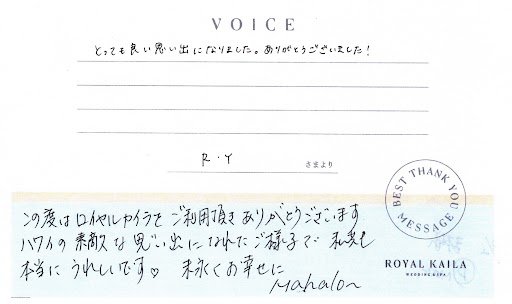 VOICE
とっても良い思い出になりました。ありがとうございました！
R・Y さまより
BEST THANK YOU MESSAGE
この度はロイヤルカイラをご利用頂きありがとうございます
ハワイの素敵な思い出になれたご様子で 私共も
本当にうれしいです♡ 末永くお幸せに
Mahalo〜
ROYAL KAILA
WEDDING & SPA